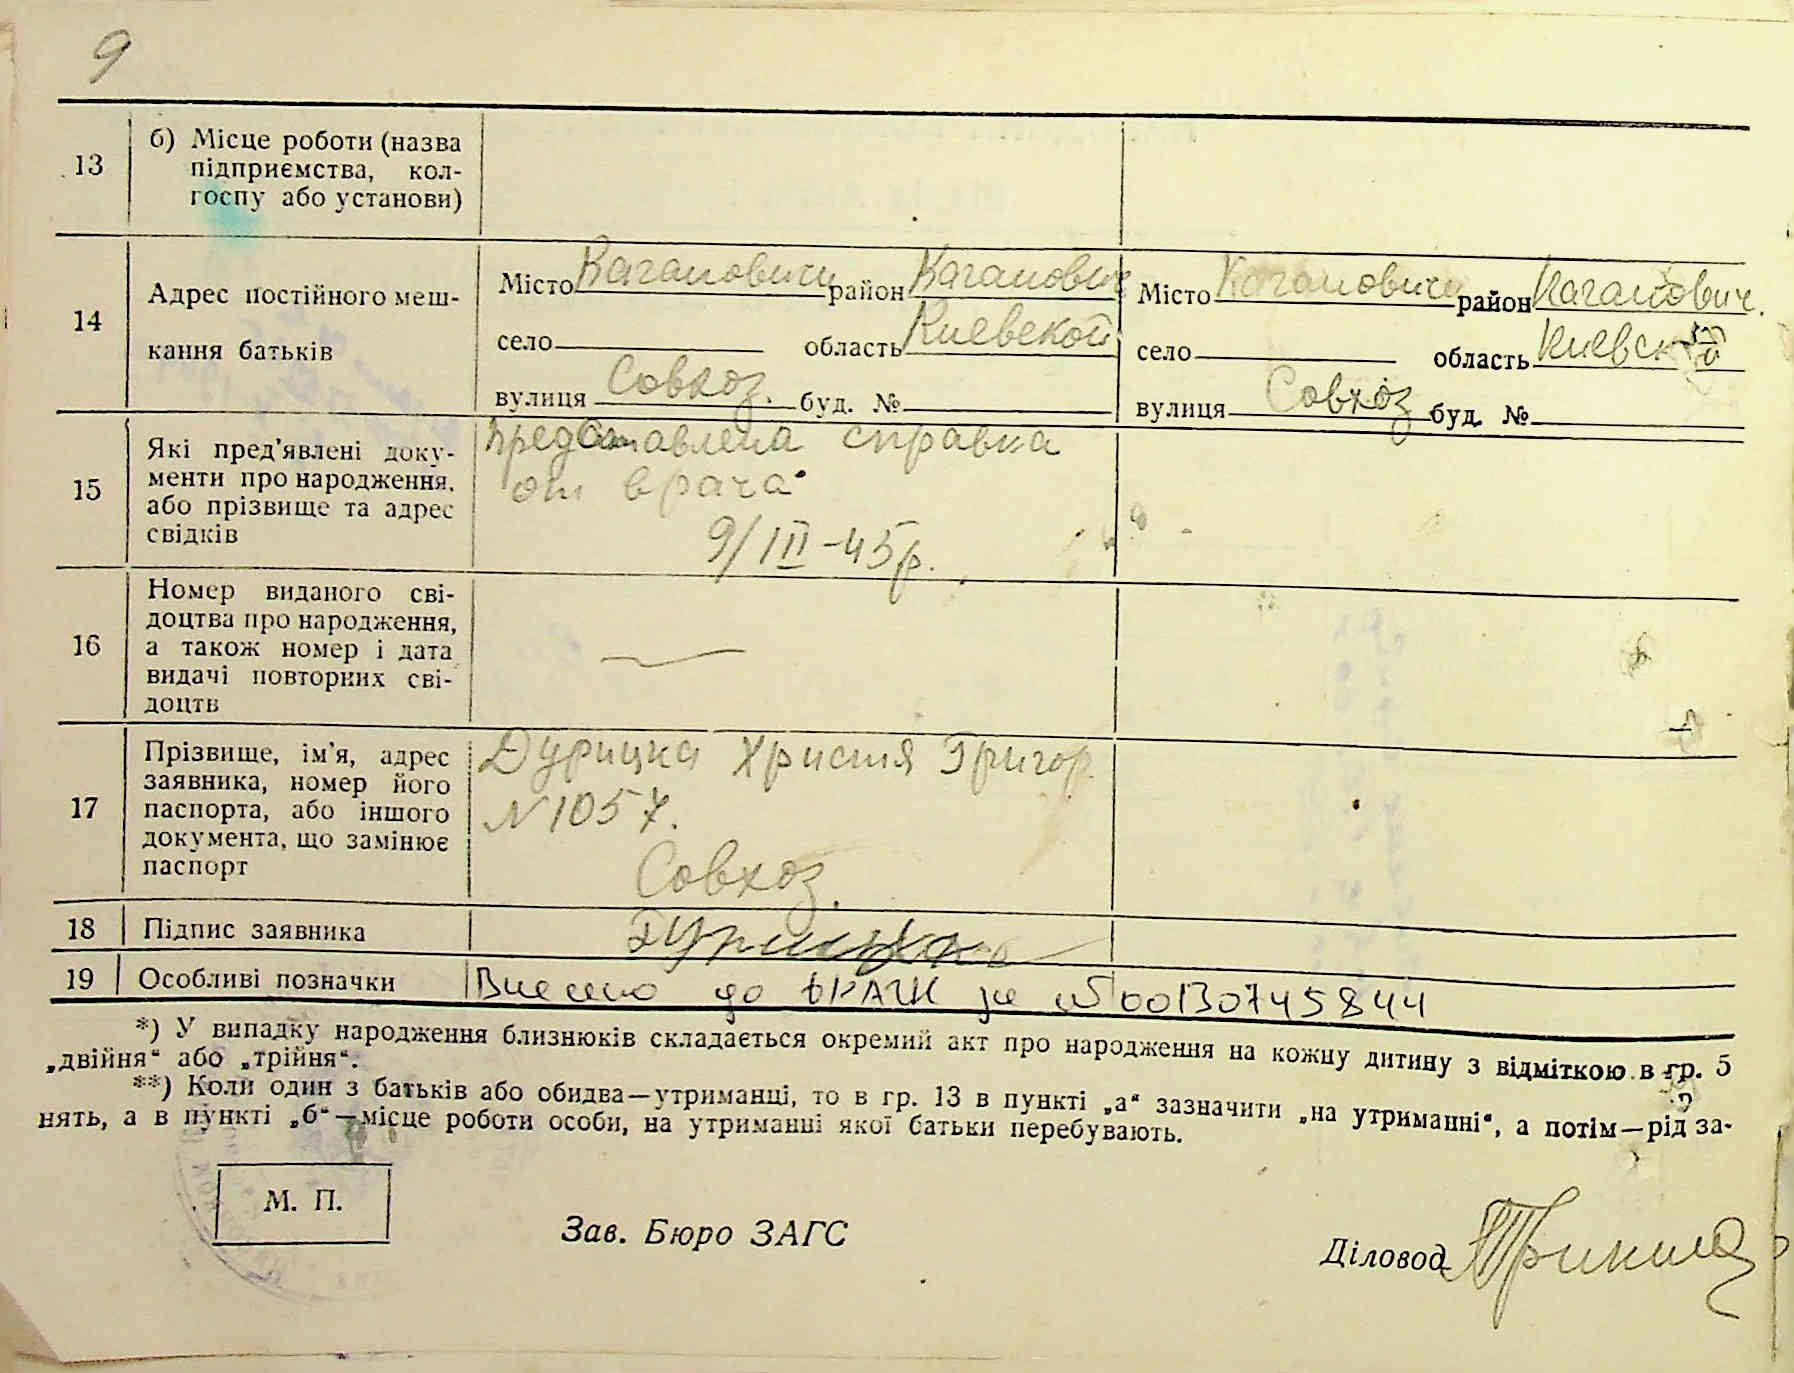 9
13 б) Місце роботи (назва
підприємства, кол-
госпу або установи)
14 Адрес постійного меш-
кання батьків
Місто Кагановичи район Каганович
село область Киевской
вулиця Совхоз. буд. №
Місто Кагановичи район Каганович.
село область Киевской
вулиця Совхоз буд. №
15 Які пред'явлені доку-
менти про народження,
або прізвище та адрес
свідків
Предоставлена справка
от врача
9/III-45р.
16 Номер виданого сві-
доцтва про народження,
а також номер і дата
видачі повторних сві-
доцтв
17 Прізвище, ім'я, адрес
заявника, номер його
паспорта, або іншого
документа, що замінює
паспорт
Дурицка Христя Григор.
N 1057.
Совхоз.
18 Підпис заявника
Дурицка
19 Особливі позначки Внесено до ДРАЦС за №00130745844
*) У випадку народження близнюків складається окремий акт про народження на кожну дитину з відміткою в гр. 5
„двійня“ або „трійня“.
**) Коли один з батьків або обидва—утриманці, то в гр. 13 в пункті „а“ зазначити „на утриманні“, а потім—рід за-
нять, а в пункті „б“—місце роботи особи, на утриманні якої батьки перебувають.
М. П.
Зав. Бюро ЗАГС
Діловод